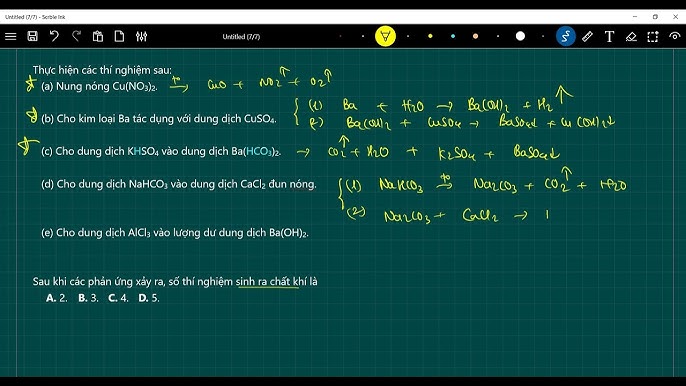 Untitled (7/7) - Scrble Ink
Untitled (7/7)
Thực hiện các thí nghiệm sau:
(a) Nung nóng Cu(NO3)2. t° → CuO + NO2↑ + O2↑
(1) Ba + H2O → Ba(OH)2 + H2↑
(b) Cho kim loại Ba tác dụng với dung dịch CuSO4.
(2) Ba(OH)2 + CuSO4 → BaSO4↓ + Cu(OH)2↓
(c) Cho dung dịch KHSO4 vào dung dịch Ba(HCO3)2. → CO2↑ + H2O + K2SO4 + BaSO4↓
(d) Cho dung dịch NaHCO3 vào dung dịch CaCl2 đun nóng. (1) NaHCO3 t° → Na2CO3 + CO2↑ + H2O
(2) Na2CO3 + CaCl2 →
(e) Cho dung dịch AlCl3 vào lượng dư dung dịch Ba(OH)2.
Sau khi các phản ứng xảy ra, số thí nghiệm sinh ra chất khí là
A. 2. B. 3. C. 4. D. 5.